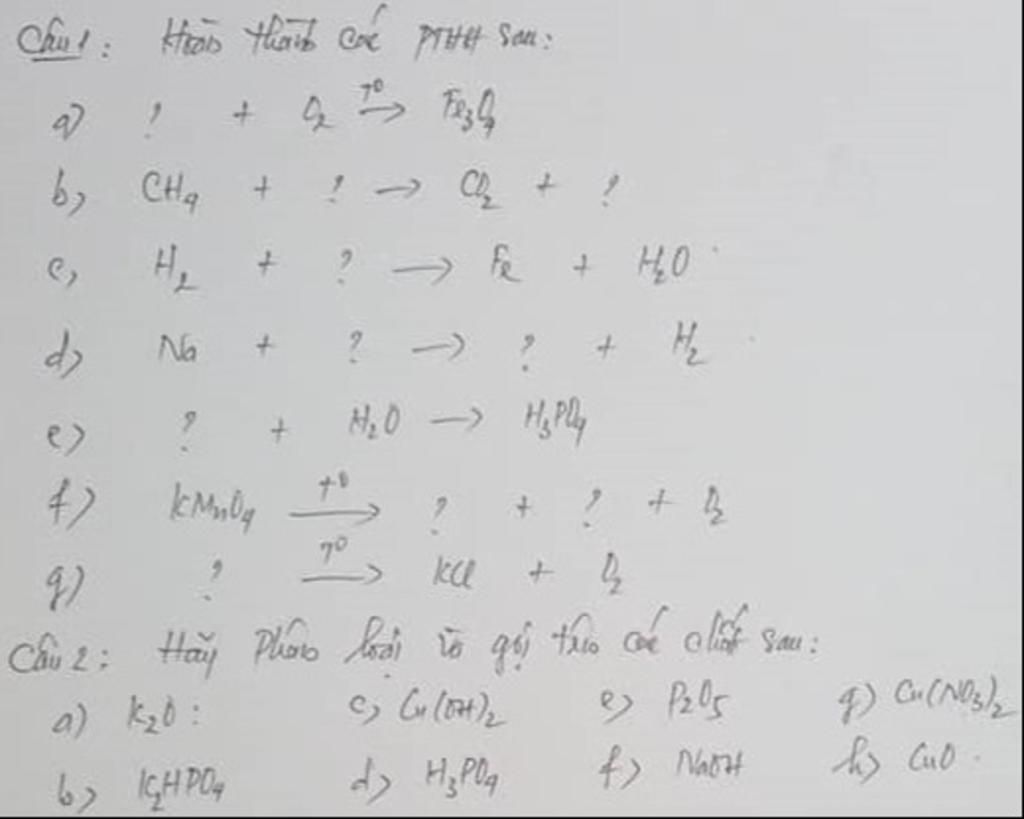 Câu 1: Hoàn thành các PTHH sau:
a) ? + O₂ –T⁰→ Fe₃O₄
b) CH₄ + ? → CO₂ + ?
c) H₂ + ? → Fe + H₂O
d) Na + ? → ? + H₂
e) ? + H₂O → H₃PO₄
f) KMnO₄ –t⁰→ ? + ? + O₂
g) ? –T⁰→ KCl + O₂
Câu 2: Hãy Phân loại và gọi tên các chất sau:
a) K₂O: c) Cu(OH)₂ e) P₂O₅ g) Cu(NO₃)₂
b) K₂HPO₄ d) H₃PO₄ f) NaOH h) CuO